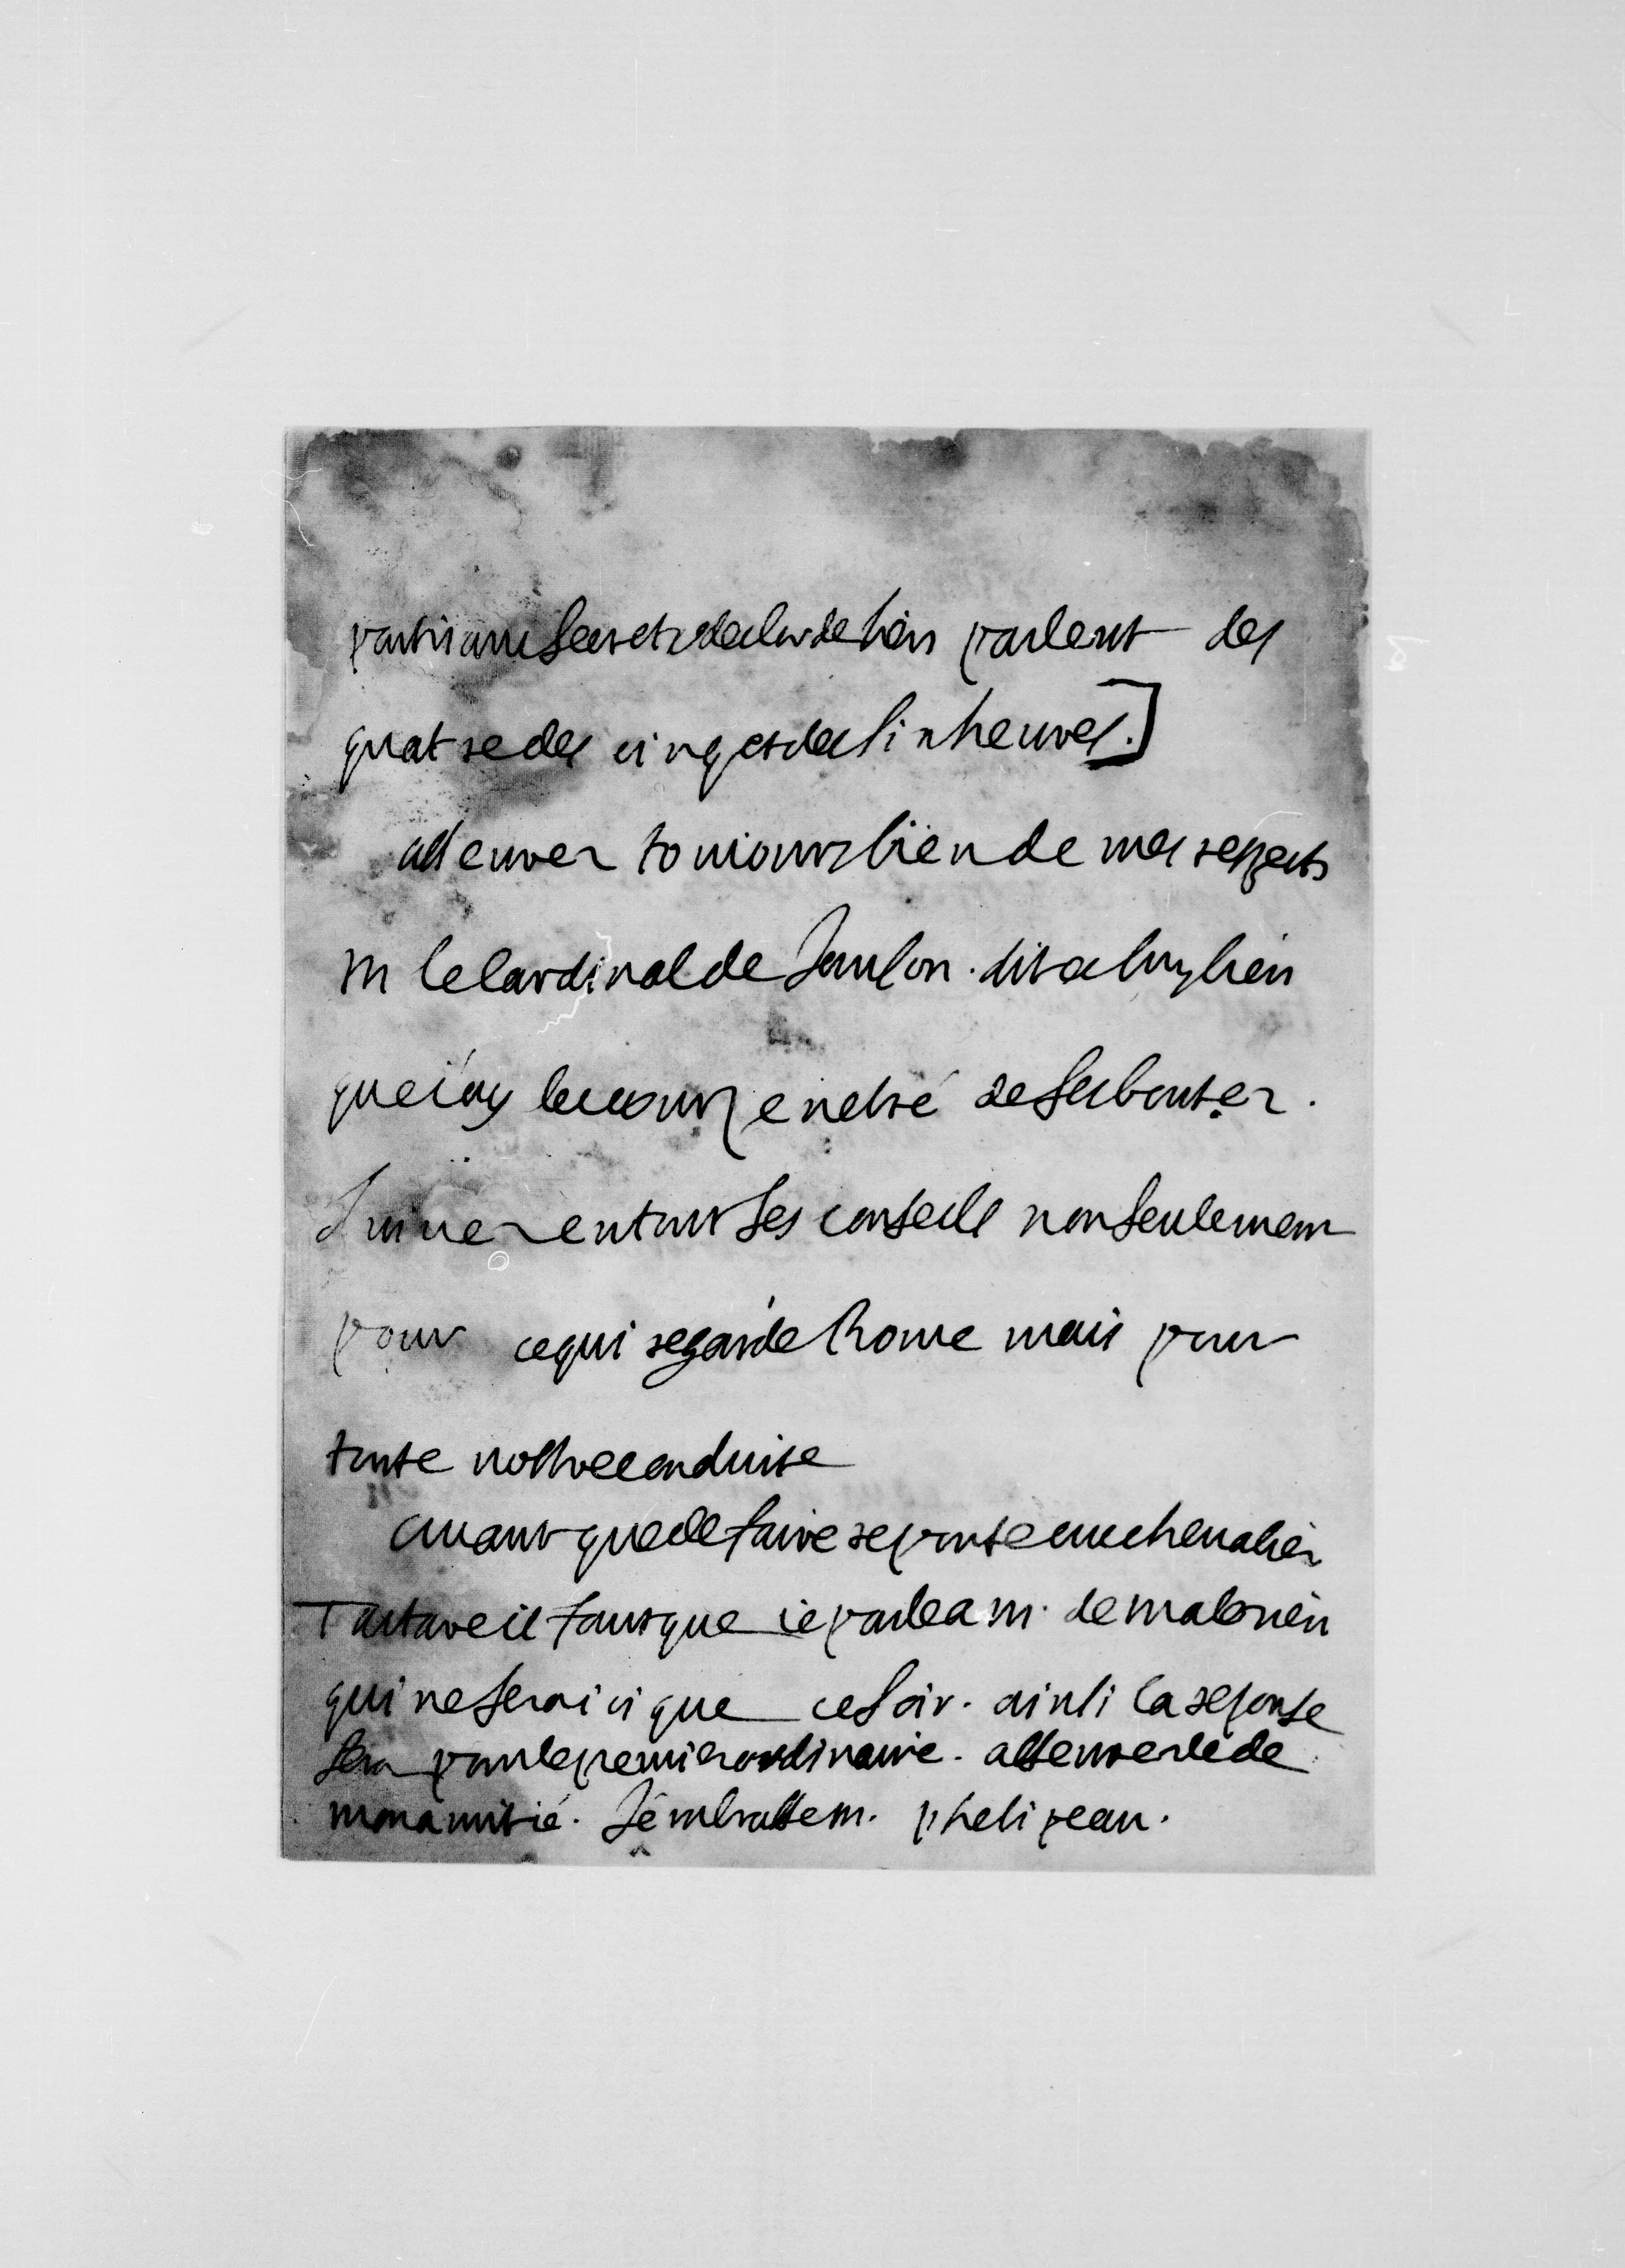 parlent des
quatre des cinq et des six heures.]
asseurez toujours bien de mes respects
M le Cardinal de Janson. dites luy bien
que i'ay le coeur penetré de ses bontez.
Suivez en tout ses conseils non seulement
pour ce qui regarde Rome mais pour
toute nostre conduite
avant que de faire reponse au chevalier
il faut que ie parle a m. de
qui ne sera ici que ce soir. ainsi la reponse
sera pour le premier ordinaire. assurez le de
mon amitié. J'embrasse m. phelipeau.